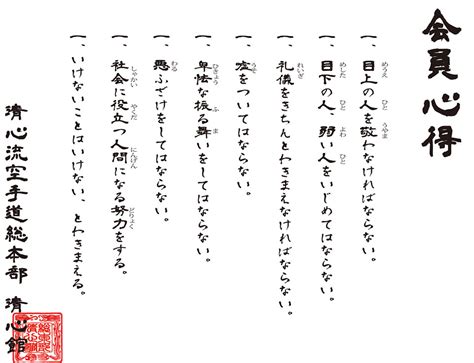 会員心得
一、目上の人を敬わなければならない。
一、目下の人、弱い人をいじめてはならない。
一、礼儀をきちんとわきまえなければならない。
一、嘘をついてはならない。
一、卑怯な振る舞いをしてはならない。
一、悪ふざけをしてはならない。
一、社会に役立つ人間になる努力をする。
一、いけないことはいけない、とわきまえる。
清心流空手道総本部 清心館